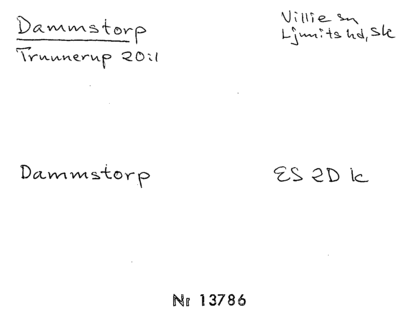 Dammstorp
Trunnerup 20:1
Villie sn
Ljunits hd, Sk
Dammstorp
ES 2D k
Nr 13786